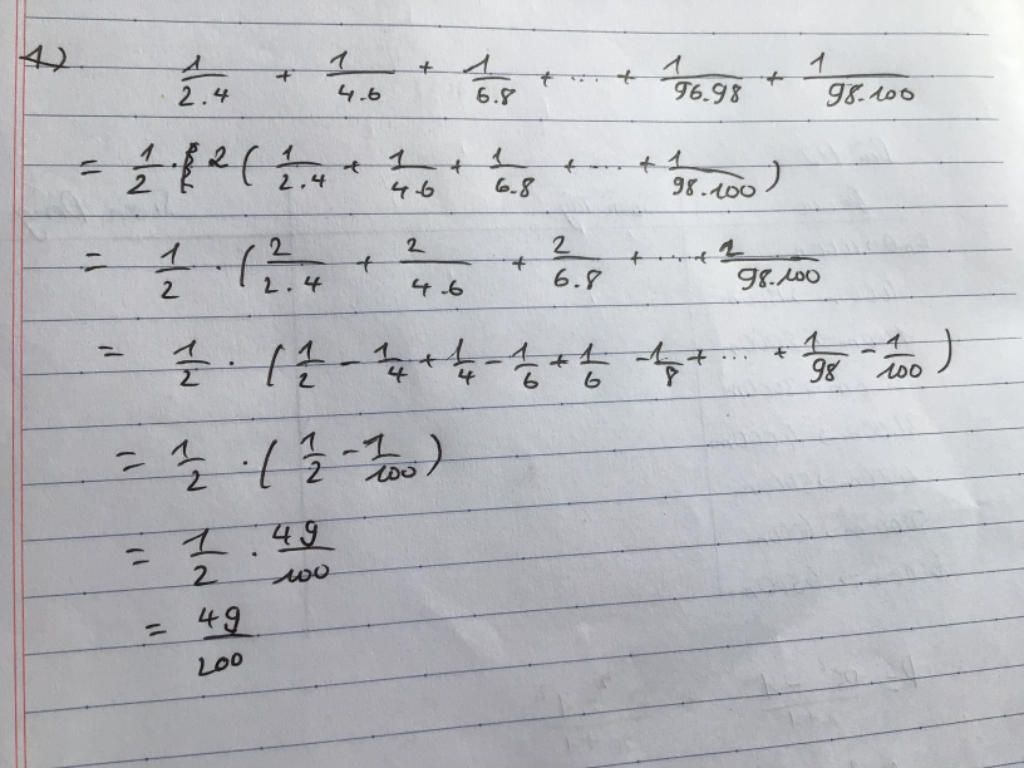 1) 1/2.4 + 1/4.6 + 1/6.8 + ... + 1/96.98 + 1/98.100
= 1/2 . 2 ( 1/2.4 + 1/4.6 + 1/6.8 + ... + 1/98.100 )
= 1/2 . ( 2/2.4 + 2/4.6 + 2/6.8 + ... + 2/98.100
= 1/2 . ( 1/2 - 1/4 + 1/4 - 1/6 + 1/6 - 1/8 + ... + 1/98 - 1/100 )
= 1/2 . ( 1/2 - 1/100 )
= 1/2 . 49/100
= 49/200